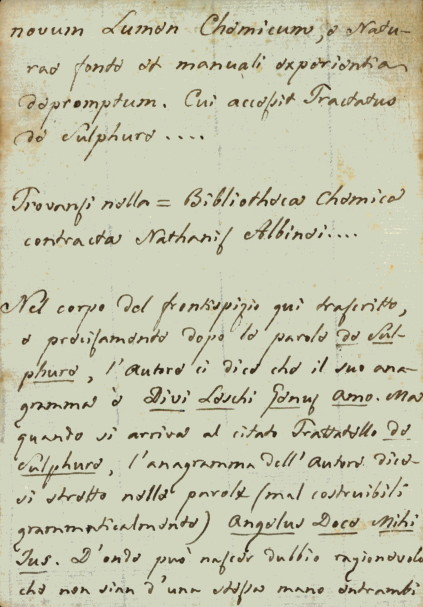 novum Lumen Chemicum, e Natu-
rae fonte et manuali experientia
depromptum. Cui accessit Tractatus
de Sulphure ....
Trovansi nella = Bibliotheca Chemica
contracta Nathanis Albinei....
Nel corpo del frontispizio qui trascritto,
e precisamente dopo le parole de Sul-
phure, l'Autore ci dice che il suo ana-
gramma è Divi Leschi Genus Amo. Ma
quando si arriva al citato Trattatello de
Sulphure, l'anagramma dell'Autore dice-
si stretto nelle parole (mal costruibili
grammaticalmente) Angelus Doce Mihi
Jus. D'onde può nascer dubbio ragionevole
che non sian d'una stessa mano entrambi